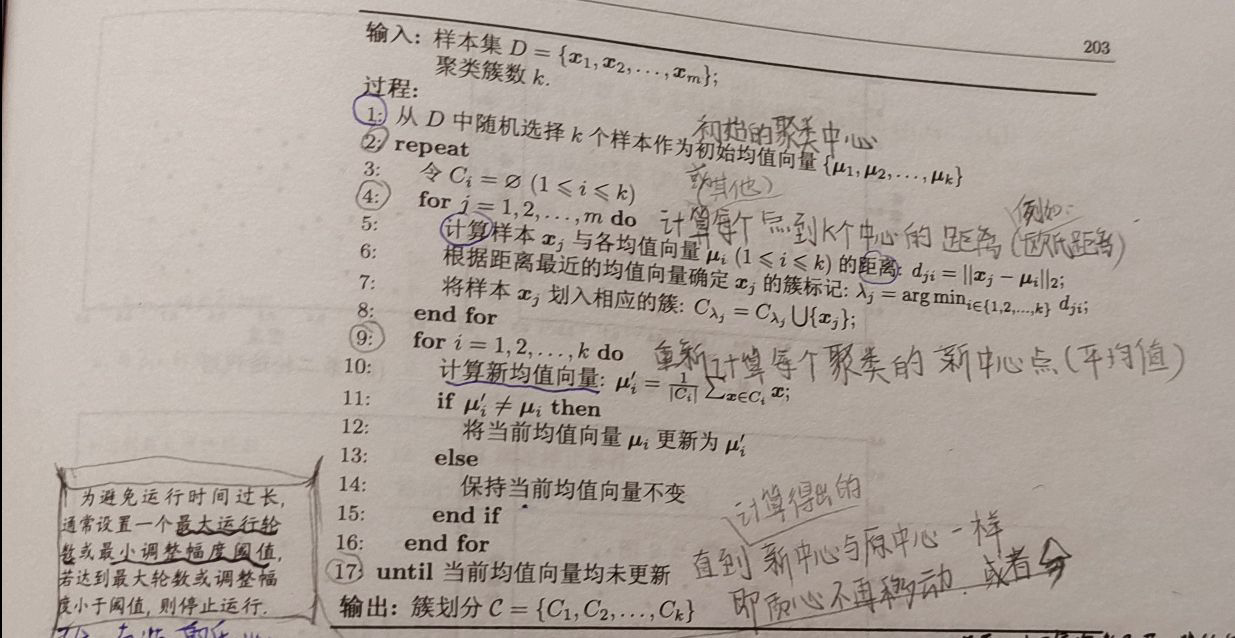 203
输入: 样本集 D = {x₁, x₂, ..., xₘ};
聚类簇数 k.
过程:
1: 从 D 中随机选择 k 个样本作为初始均值向量 {μ₁, μ₂, ..., μₖ}
初始的聚类中心
2: repeat
3: 令 Cᵢ = ∅ (1 ⩽ i ⩽ k)
其他)
4: for j = 1, 2, ..., m do
计算每个点到K个中心的距离(欧氏距离)
例如:
5: 计算样本 xⱼ 与各均值向量 μᵢ (1 ⩽ i ⩽ k) 的距离: dⱼᵢ = ||xⱼ − μᵢ||₂;
6: 根据距离最近的均值向量确定 xⱼ 的簇标记: λⱼ = arg min_{i∈{1,2,...,k}} dⱼᵢ;
7: 将样本 xⱼ 划入相应的簇: C_{λⱼ} = C_{λⱼ} ⋃{xⱼ};
8: end for
9: for i = 1, 2, ..., k do
重新计算每个聚类的新中心点(平均值)
10: 计算新均值向量: μ′ᵢ = 1/|Cᵢ| ∑_{x∈Cᵢ} x;
11: if μ′ᵢ ≠ μᵢ then
12: 将当前均值向量 μᵢ 更新为 μ′ᵢ
13: else
14: 保持当前均值向量不变
15: end if
16: end for
17: until 当前均值向量均未更新
计算得出的
直到新中心与原中心一样
即质心不再移动. 或者
输出: 簇划分 C = {C₁, C₂, ..., Cₖ}
为避免运行时间过长,
通常设置一个最大运行轮
数或最小调整幅度阈值,
若达到最大轮数或调整幅
度小于阈值, 则停止运行.